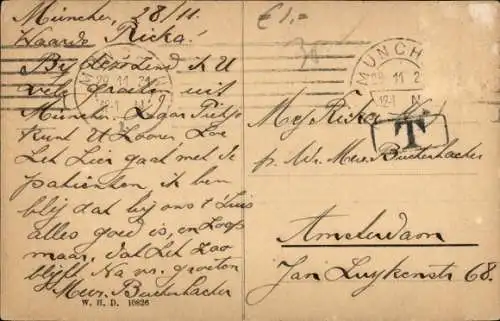 München, 28/11.
Waarde Ricka!
Bij deze zend ik U
vele groeten uit
München. Lgar Pietje
kunt U hooren hoe
het hier gaat met de
patienten, ik ben
blij dat bij ons t'huis
alles goed is, en hoop
maar, dat het zoo
blijft. Na vr. groeten
Mevr. Buchenbacher
W. H. D. 10826
€1.-
30
MÜNCHEN
28 11 21
12-1 N
MÜNCH
28 11 2
12-1 N
T
Mej Ricka
p. Adr. Mevr. Buchenbacher
Amsterdam
Jan Luykenstr 68.